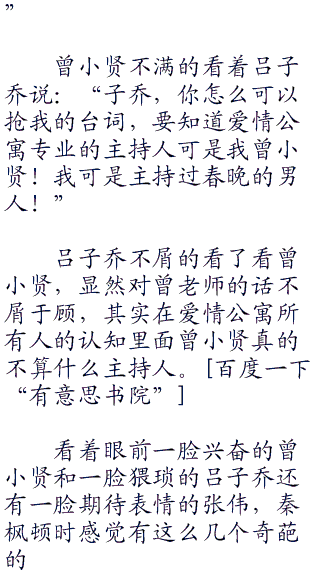 ”
曾小贤不满的看着吕子
乔说：“子乔，你怎么可以
抢我的台词，要知道爱情公
寓专业的主持人可是我曾小
贤！我可是主持过春晚的男
人！”
吕子乔不屑的看了看曾
小贤，显然对曾老师的话不
屑于顾，其实在爱情公寓所
有人的认知里面曾小贤真的
不算什么主持人。[百度一下
“有意思书院”]
看着眼前一脸兴奋的曾
小贤和一脸猥琐的吕子乔还
有一脸期待表情的张伟，秦
枫顿时感觉有这么几个奇葩
的